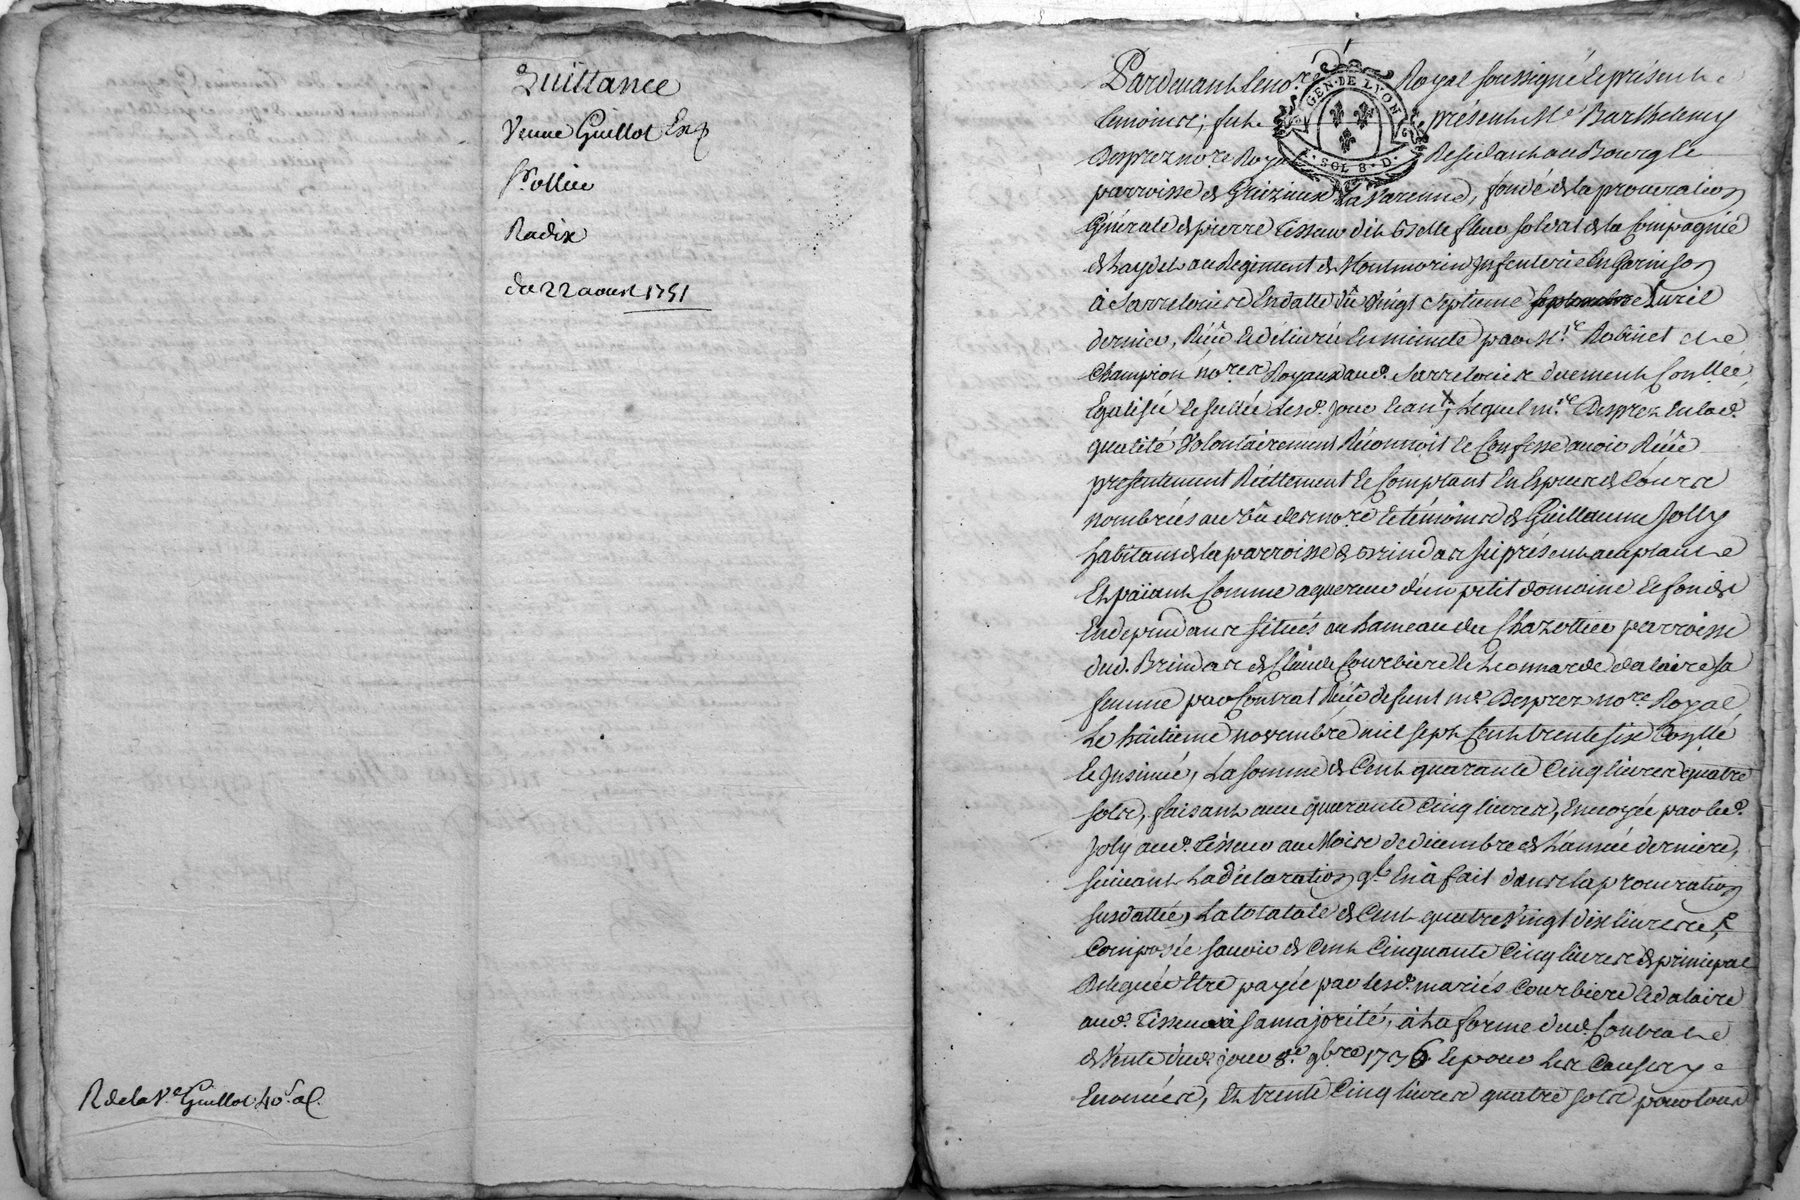 Quittance
Veuve Guillot
Sr ollier
Radix
du 22 aoust 1751
R de la Ve Guillot 40s
Pardevant le nore Royal soussigné et présents
temoins; fut présent Me Barthelemy
Desprez nore Royal Residant au Bourg et
parroisse de Grézieux La Varenne, fondé de la procuration
Générale de pierre Tisseur dit Bellefleur soldat de la Compagnie
de au Regiment de Montmorin Infenterie En Garnison
à Sarrelouis En datte du vingt septieme septembre avril
dernier, Reçue et délivrée En minute par Me Robinet et
Champion nores Royaux aud. Sarrelouis duement Conllée
Egalisée et scellée lesd. jour et an, Lequel me Desprez En lad.
qualité volontairement Reconnoit et Confesse avoir Reçu
presentement Réellement et Comptant En Espèces de Cours
nombrées au vû des nore et témoins de Guillaume Jolly
habitant de la parroisse de Brindas ici présent acceptant
Et païant Comme aquereur d'un petit domaine et fonds
En dependans situés au hameau du Chazottier parroisse
dud. Brindas de Claude Courbiere et Leonnarde dalaire sa
femme par Contrat Reçu defunt me Desprez nore Royal
Le huitieme novembre mil sept Cent trente six Conllé
et Insinué, La somme de Cent quarante Cinq livres quatre
sols, faisant avec quarante Cinq livres, Envoyée par led.
Joly aud. Tisseur au Mois de decembre de L'année derniere,
suivant La déclaration qll En à fait dans la procuration
susdattée, La totalité de Cent quatre vingt dix livres
Composée savoir de Cent Cinquante Cinq livres de principal
Deleguée Etre payée par lesd. mariés Courbiere et dalaire
aud. Tisseur à sa majorité, à La forme dud. Contrat
de vente dud. jour 8e 9bre 1736 et pour Les Causes y
Enoncées, Et trente Cinq livres quatre sols pour tous
GEN. DE LYON
SOL 8. D.